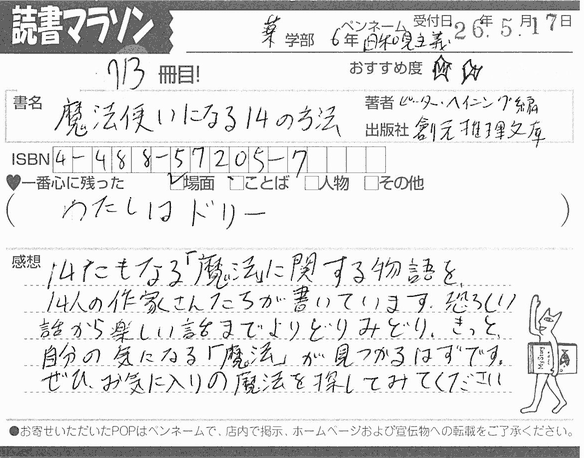 読書マラソン
薬 学部 6年 ペンネーム 自和規主義 受付日 26年 5月 17日
713 冊目! おすすめ度 ☆☆
書名 魔法使いになる14の方法 著者 ピーター・ヘイニング編
出版社 創元推理文庫
ISBN 4-488-57205-7
♥一番心に残った ☑場面 □ことば □人物 □その他
( わたしはドリー )
感想 14にもなる「魔法」に関する物語を、
14人の作家さんたちが書いています。恐ろしい
話から楽しい話までよりどりみどり。きっと、
自分の気になる「魔法」が見つかるはずです。
ぜひ、お気に入りの魔法を探してみてください
●お寄せいただいたPOPはペンネームで、店内で掲示、ホームページおよび宣伝物への転載をご了承ください。